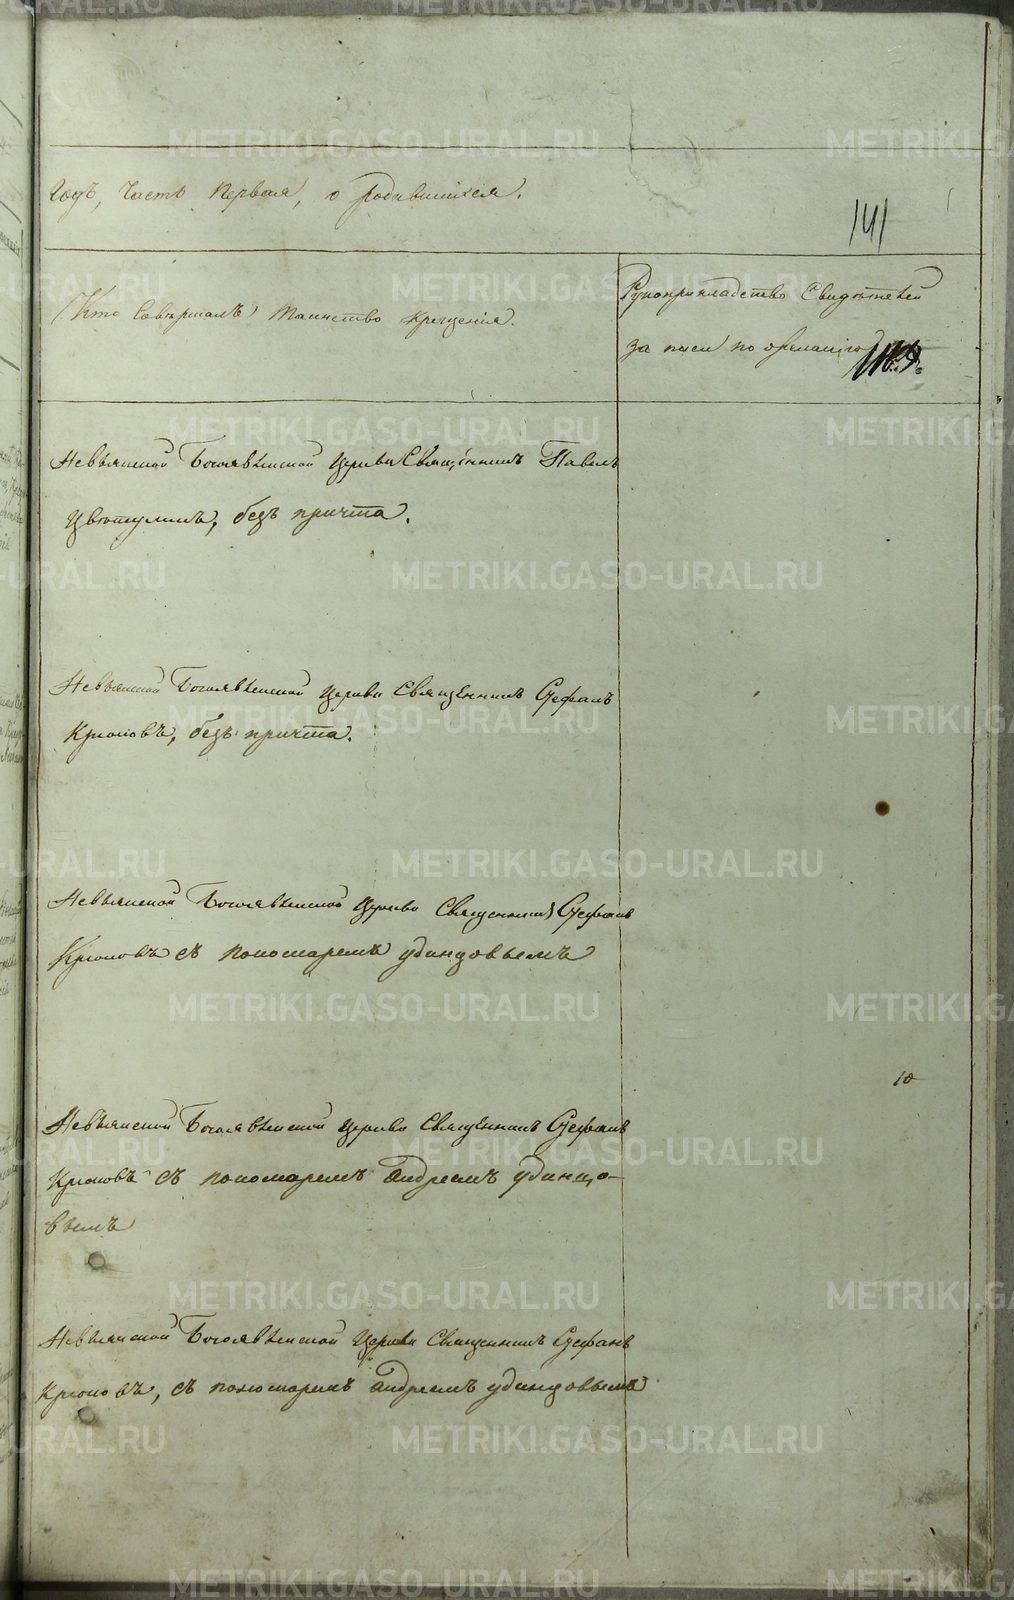 Годъ, Часть Первая, о родившихся.
141
Кто Совершалъ Таинство Крещенія.
Рукоприкладство Свидѣтелей
за писи по
Невьянской Богоявленской Церкви Священникъ Павелъ
безъ причта.
Невьянской Богоявленской Церкви Священникъ Стефанъ
Крюковъ, безъ причта.
Невьянской Богоявленской Церкви Священникъ Стефанъ
Крюковъ съ пономаремъ удинцовымъ
10
Невьянской Богоявленской Церкви Священникъ Стефанъ
Крюковъ съ пономаремъ андреемъ удинцо-
вымъ
Невьянской Богоявленской Церкви Священникъ Стефанъ
Крюковъ, съ пономаремъ андреемъ удинцовымъ
METRIKI.GASO-URAL.RU